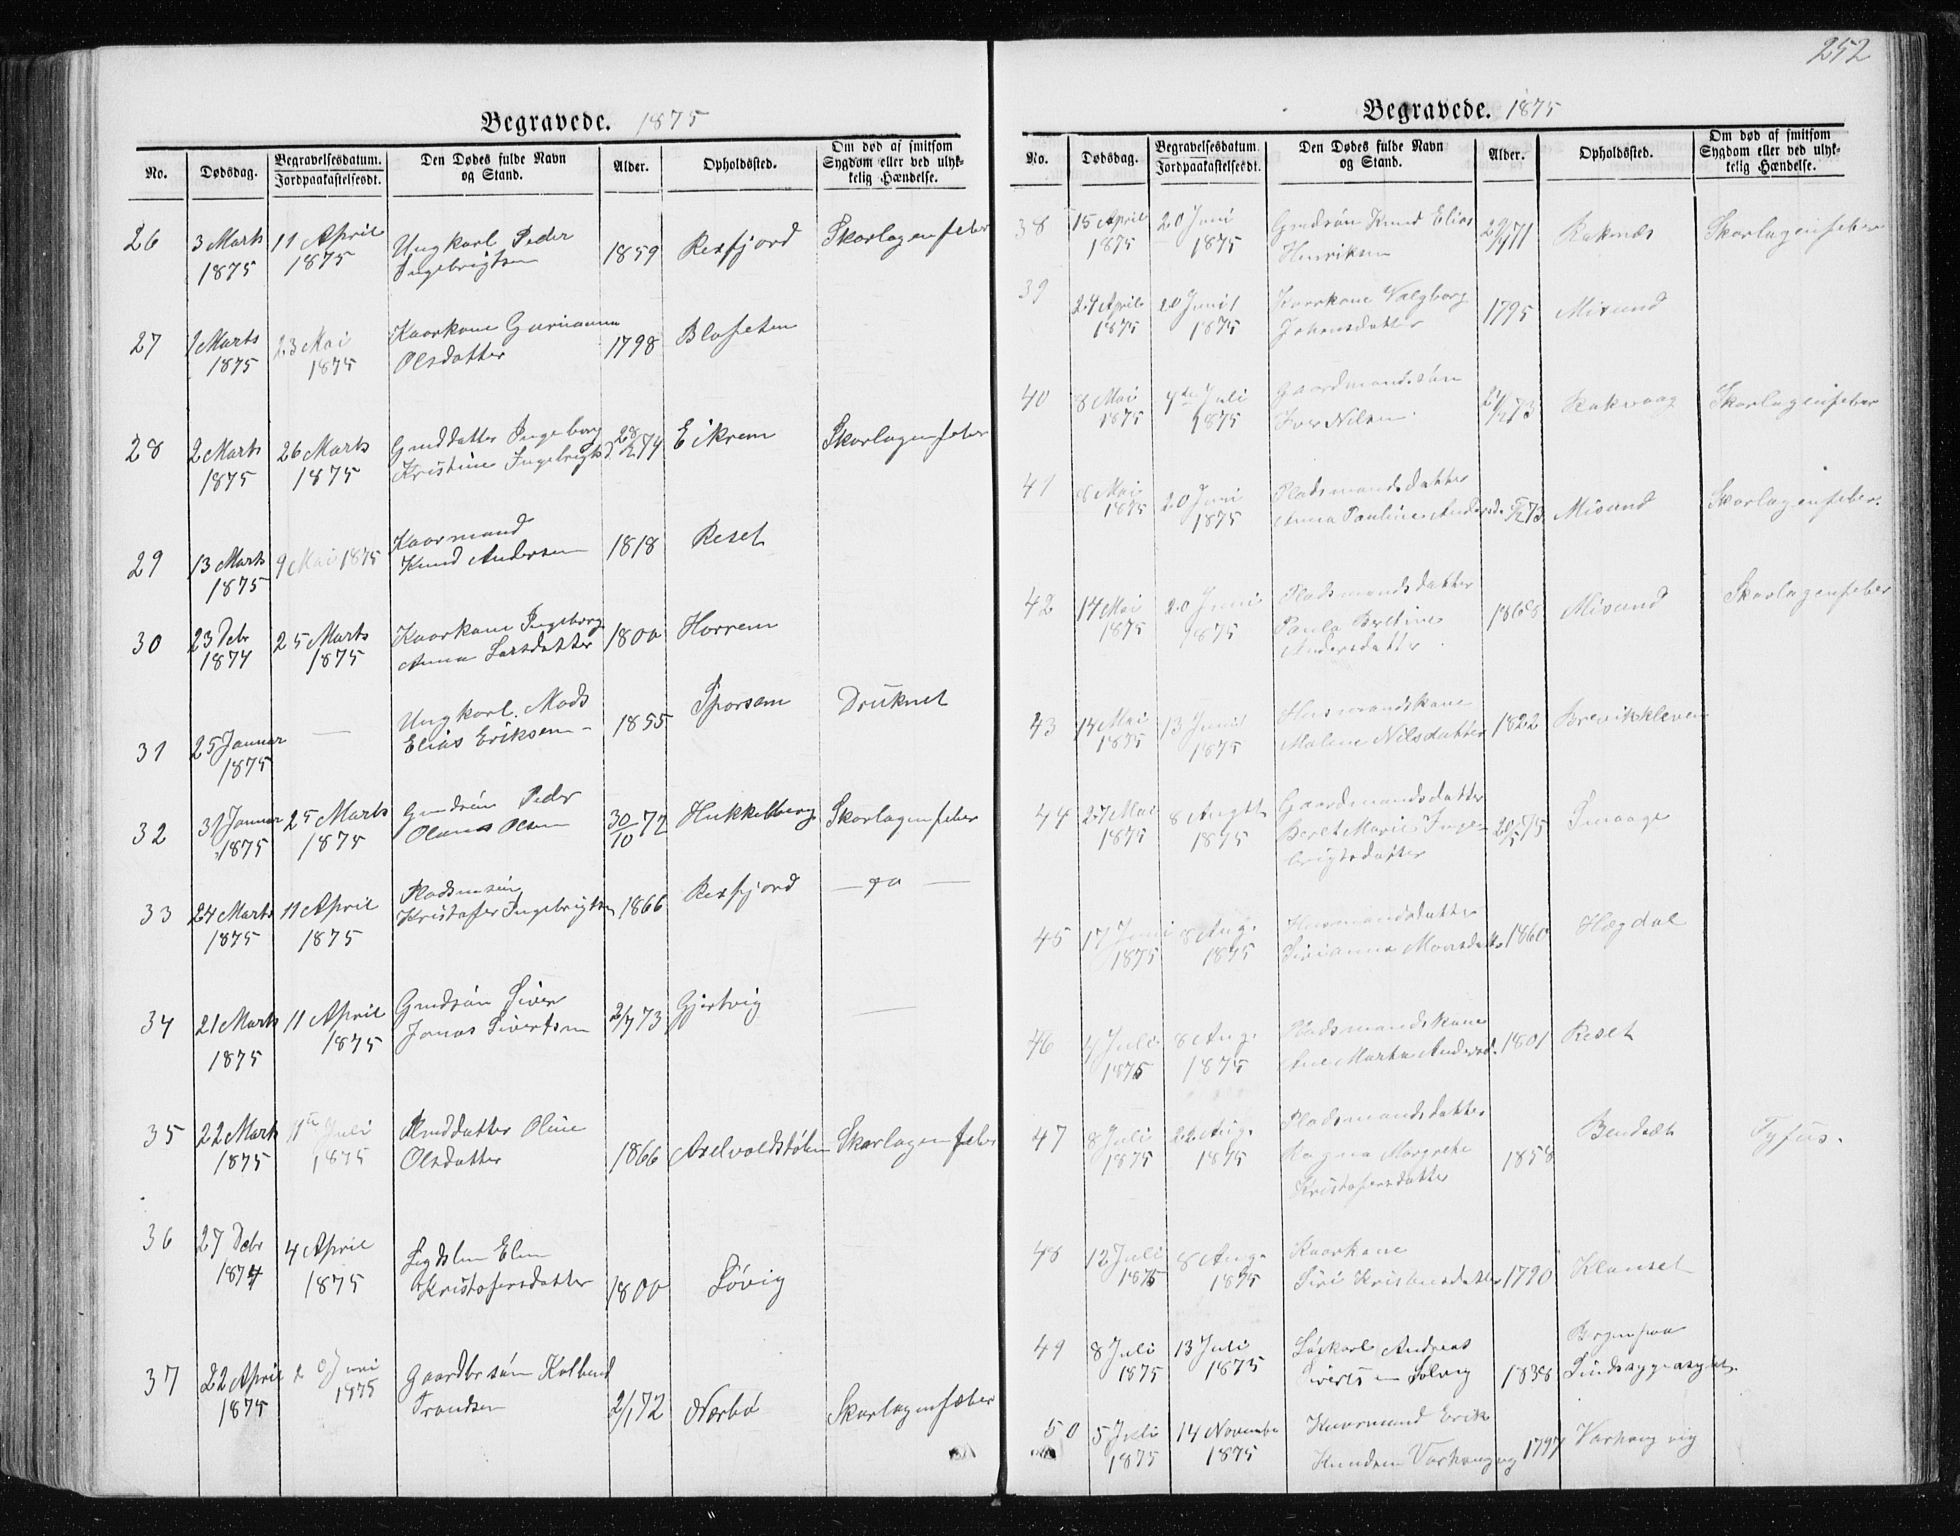 252
Begravede. 1875
No. Dødsdag. Begravelsesdatum. Jordpaakastelsesdt. Den Dødes fulde Navn og Stand. Alder. Opholdssted. Om død af smitsom Sygdom eller ved ulykkelig Hændelse.
26 3 Marts 1875 11 April 1875 Ungkarl Peder Ingebrigtsen 1859 Rexfjord Skarlagensfeber
27 1 Marts 1875 23 Mai 1875 Kaarkone Gurianna Olsdatter 1798
28 2 Marts 1875 26 Marts 1875 Grmddatter Ingeborg Kristine Ingebrigtsd 28/2 74 Eikrem Skarlagensfeber
29 13 Marts 1875 9 Mai 1875 Kaarmand Knud Andersen 1818 Reset
30 23 Debr 1874 25 Marts 1875 Kaarkone Ingeborg Anna Larsdatter 1800 Horrem
31 25 Januar 1875 — Ungkarl Mads Elias Eriksen 1855 Sporsem Druknet
32 31 Januar 1875 25 Marts 1875 Grmdsøn Peder Olaus Olsen 30/10 72 Hukkelberg Skarlagensfeber
33 24 Marts 1875 11 April 1875 Pladsmsøn Kristofer Ingebrigtsen 1866 Rexfjord — do —
34 21 Marts 1875 11 April 1875 Grmdsøn Siver Jonas Sivertsen 2/7 73 Gjertvig —
35 22 Marts 1875 11te Juli 1875 Plmddatter Oline Olsdatter 1866 Axelvoldstølen Skarlagensfeber
36 27 Debr 1874 4 April 1875 Lgdslm Elen Kristofersdatter 1800 Løvig
37 22 April 1875 20 Juni 1875 Gaardbrsøn Kolbend Trondsen 2/1 72 Nerbø Skarlagensfæber
Begravede. 1875
No. Dødsdag. Begravelsesdatum. Jordpaakastelsesdt. Den Dødes fulde Navn og Stand. Alder. Opholdssted. Om død af smitsom Sygdom eller ved ulykkelig Hændelse.
38 15 April 1875 20 Juni 1875 Grmdsøn Knud Elias Henriksen 71 Raknæs Skarlagensfeber
39 24 April 1875 20 Juni 1875 Kaarkone Valgborg Johansdatter 1795 Misund
40 8 Mai 1875 4de Juli 1875 Gaardmandssøn Iver Nilsen 73 Rakvaag Skarlagensfeber
41 8 Mai 1875 20 Juni 1875 Pladsmandsdatter Anna Pauline Andersd. 73 Misund Skarlagensfeber.
42 14 Mai 1875 20 Juni 1875 Pladsmandsdatter Paula Bertine Andersdatter 1868 Misund Skarlagensfeber
43 14 Mai 1875 13 Juni 1875 Husmandskone Malene Nilsdatter 1822 Brevikkleven
44 27 Mai 1875 8 Augst 1875 Gaardmandsdatter Beret Marie Ingebrigtsdatter 20/5 75 Smaage
45 17 Juni 1875 8 Aug. 1875 Husmandsdatter Sirianna Monsdatter 1860 Hægdal
46 4 Juli 1875 8 Aug. 1875 Pladsmandskone Ane Marta Andersd. 1801 Reset
47 8 Juli 1875 22 Aug. 1875 Pladsmandsdatter Ragna Margrete Kristofersdatter 1858 Bendset Tyfus.
48 12 Juli 1875 8 Aug. 1875 Kaarkone Siri Kristensdatter 1790 Klauset
49 8 Juli 1875 13 Juli 1875 Løskarl Andreas Sivertsen Solvig 1838 Bergens Sindssygeasyl.
50 5 Juli 1875 14 November 1875 Kaarmand Erik Knudsen Varhaugvig 1797 Varhaugvig